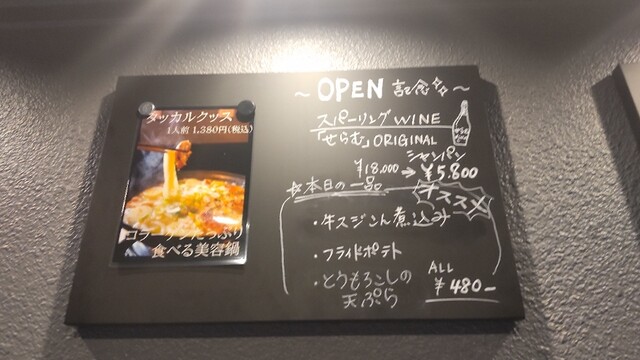 タッカルクッス
1人前 1,380円(税込)
コラーゲンたっぷり
食べる美容鍋
～ OPEN 記念 ～
スパーリングWINE
「せらむ」ORIGINAL
シャンパン
¥18.000 → ¥5.800
☆本日の一品
オススメ
・牛スジこん煮込み
・フライドポテト
・とうもろこしの
天ぷら
ALL
¥480-